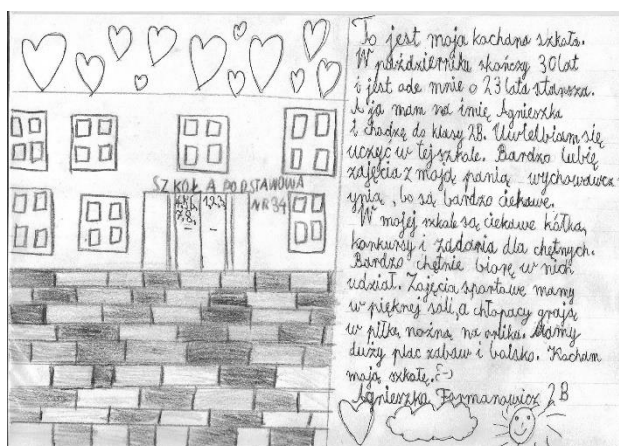 SZKOŁA PODSTAWOWA
NR 34
4,5,6, 1,2,3
7,8,
To jest moja kochana szkoła.
W październiku skończy 30 lat
i jest ode mnie o 23 lata starsza.
A ja mam na imię Agnieszka
i chodzę do klasy 2B. Uwielbiam się
uczyć w tej szkole. Bardzo lubię
zajęcia z moją panią wychowawcz
ynią, bo są bardzo ciekawe.
W mojej szkole są ciekawe kółka,
konkursy i zadania dla chętnych.
Bardzo chętnie biorę w nich
udział. Zajęcia sportowe mamy
w pięknej sali, a chłopacy grają
w piłkę nożną na orliku. Mamy
duży plac zabaw i boisko. Kocham
moją szkołę. :-)
Agnieszka Furmanowicz 2B